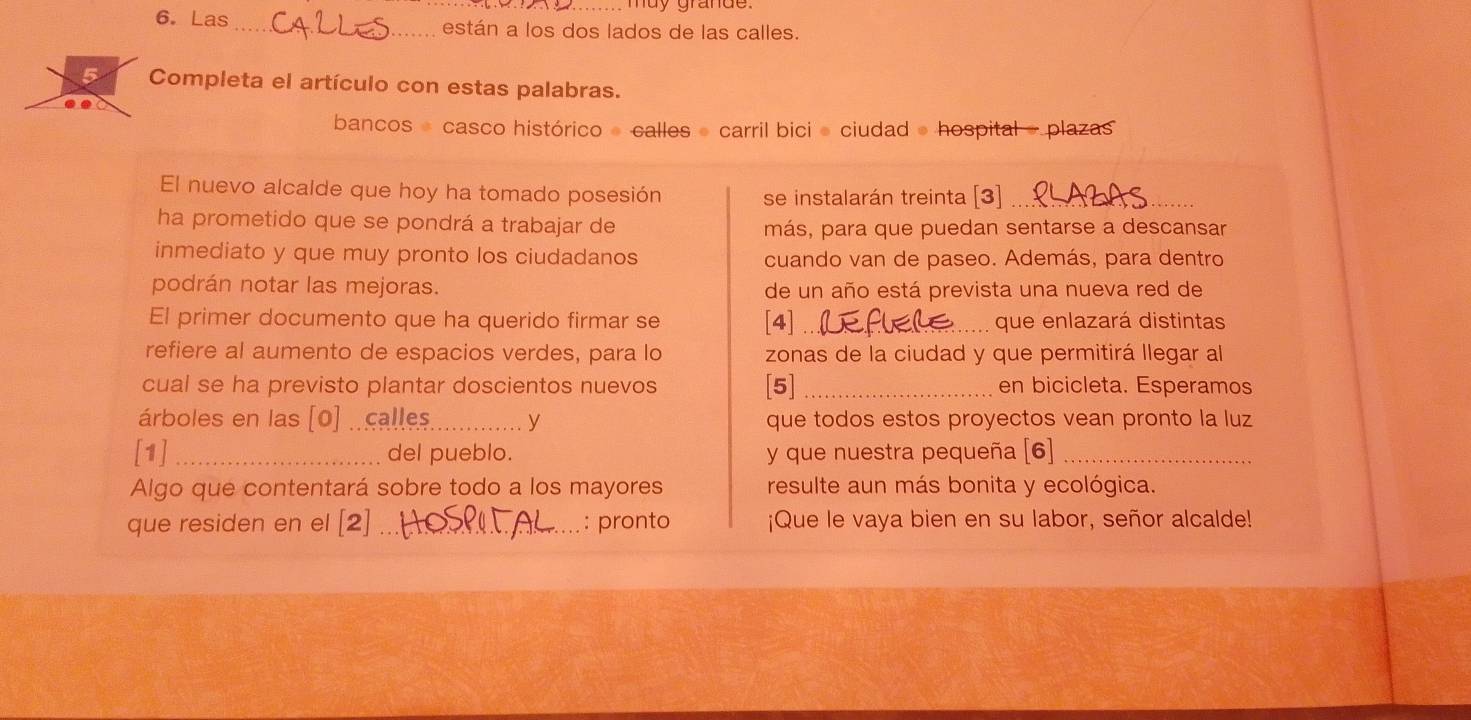 muy grande.
6. Las CALLES están a los dos lados de las calles.
5 Completa el artículo con estas palabras.
bancos • casco histórico • calles • carril bici • ciudad • hospital • plazas
El nuevo alcalde que hoy ha tomado posesión
ha prometido que se pondrá a trabajar de
inmediato y que muy pronto los ciudadanos
podrán notar las mejoras.
El primer documento que ha querido firmar se
refiere al aumento de espacios verdes, para lo
cual se ha previsto plantar doscientos nuevos
árboles en las [0] calles y
[1] del pueblo.
Algo que contentará sobre todo a los mayores
que residen en el [2] HOSPITAL : pronto
se instalarán treinta [3] PLAZAS
más, para que puedan sentarse a descansar
cuando van de paseo. Además, para dentro
de un año está prevista una nueva red de
[4] REFIERE que enlazará distintas
zonas de la ciudad y que permitirá llegar al
[5] en bicicleta. Esperamos
que todos estos proyectos vean pronto la luz
y que nuestra pequeña [6]
resulte aun más bonita y ecológica.
¡Que le vaya bien en su labor, señor alcalde!